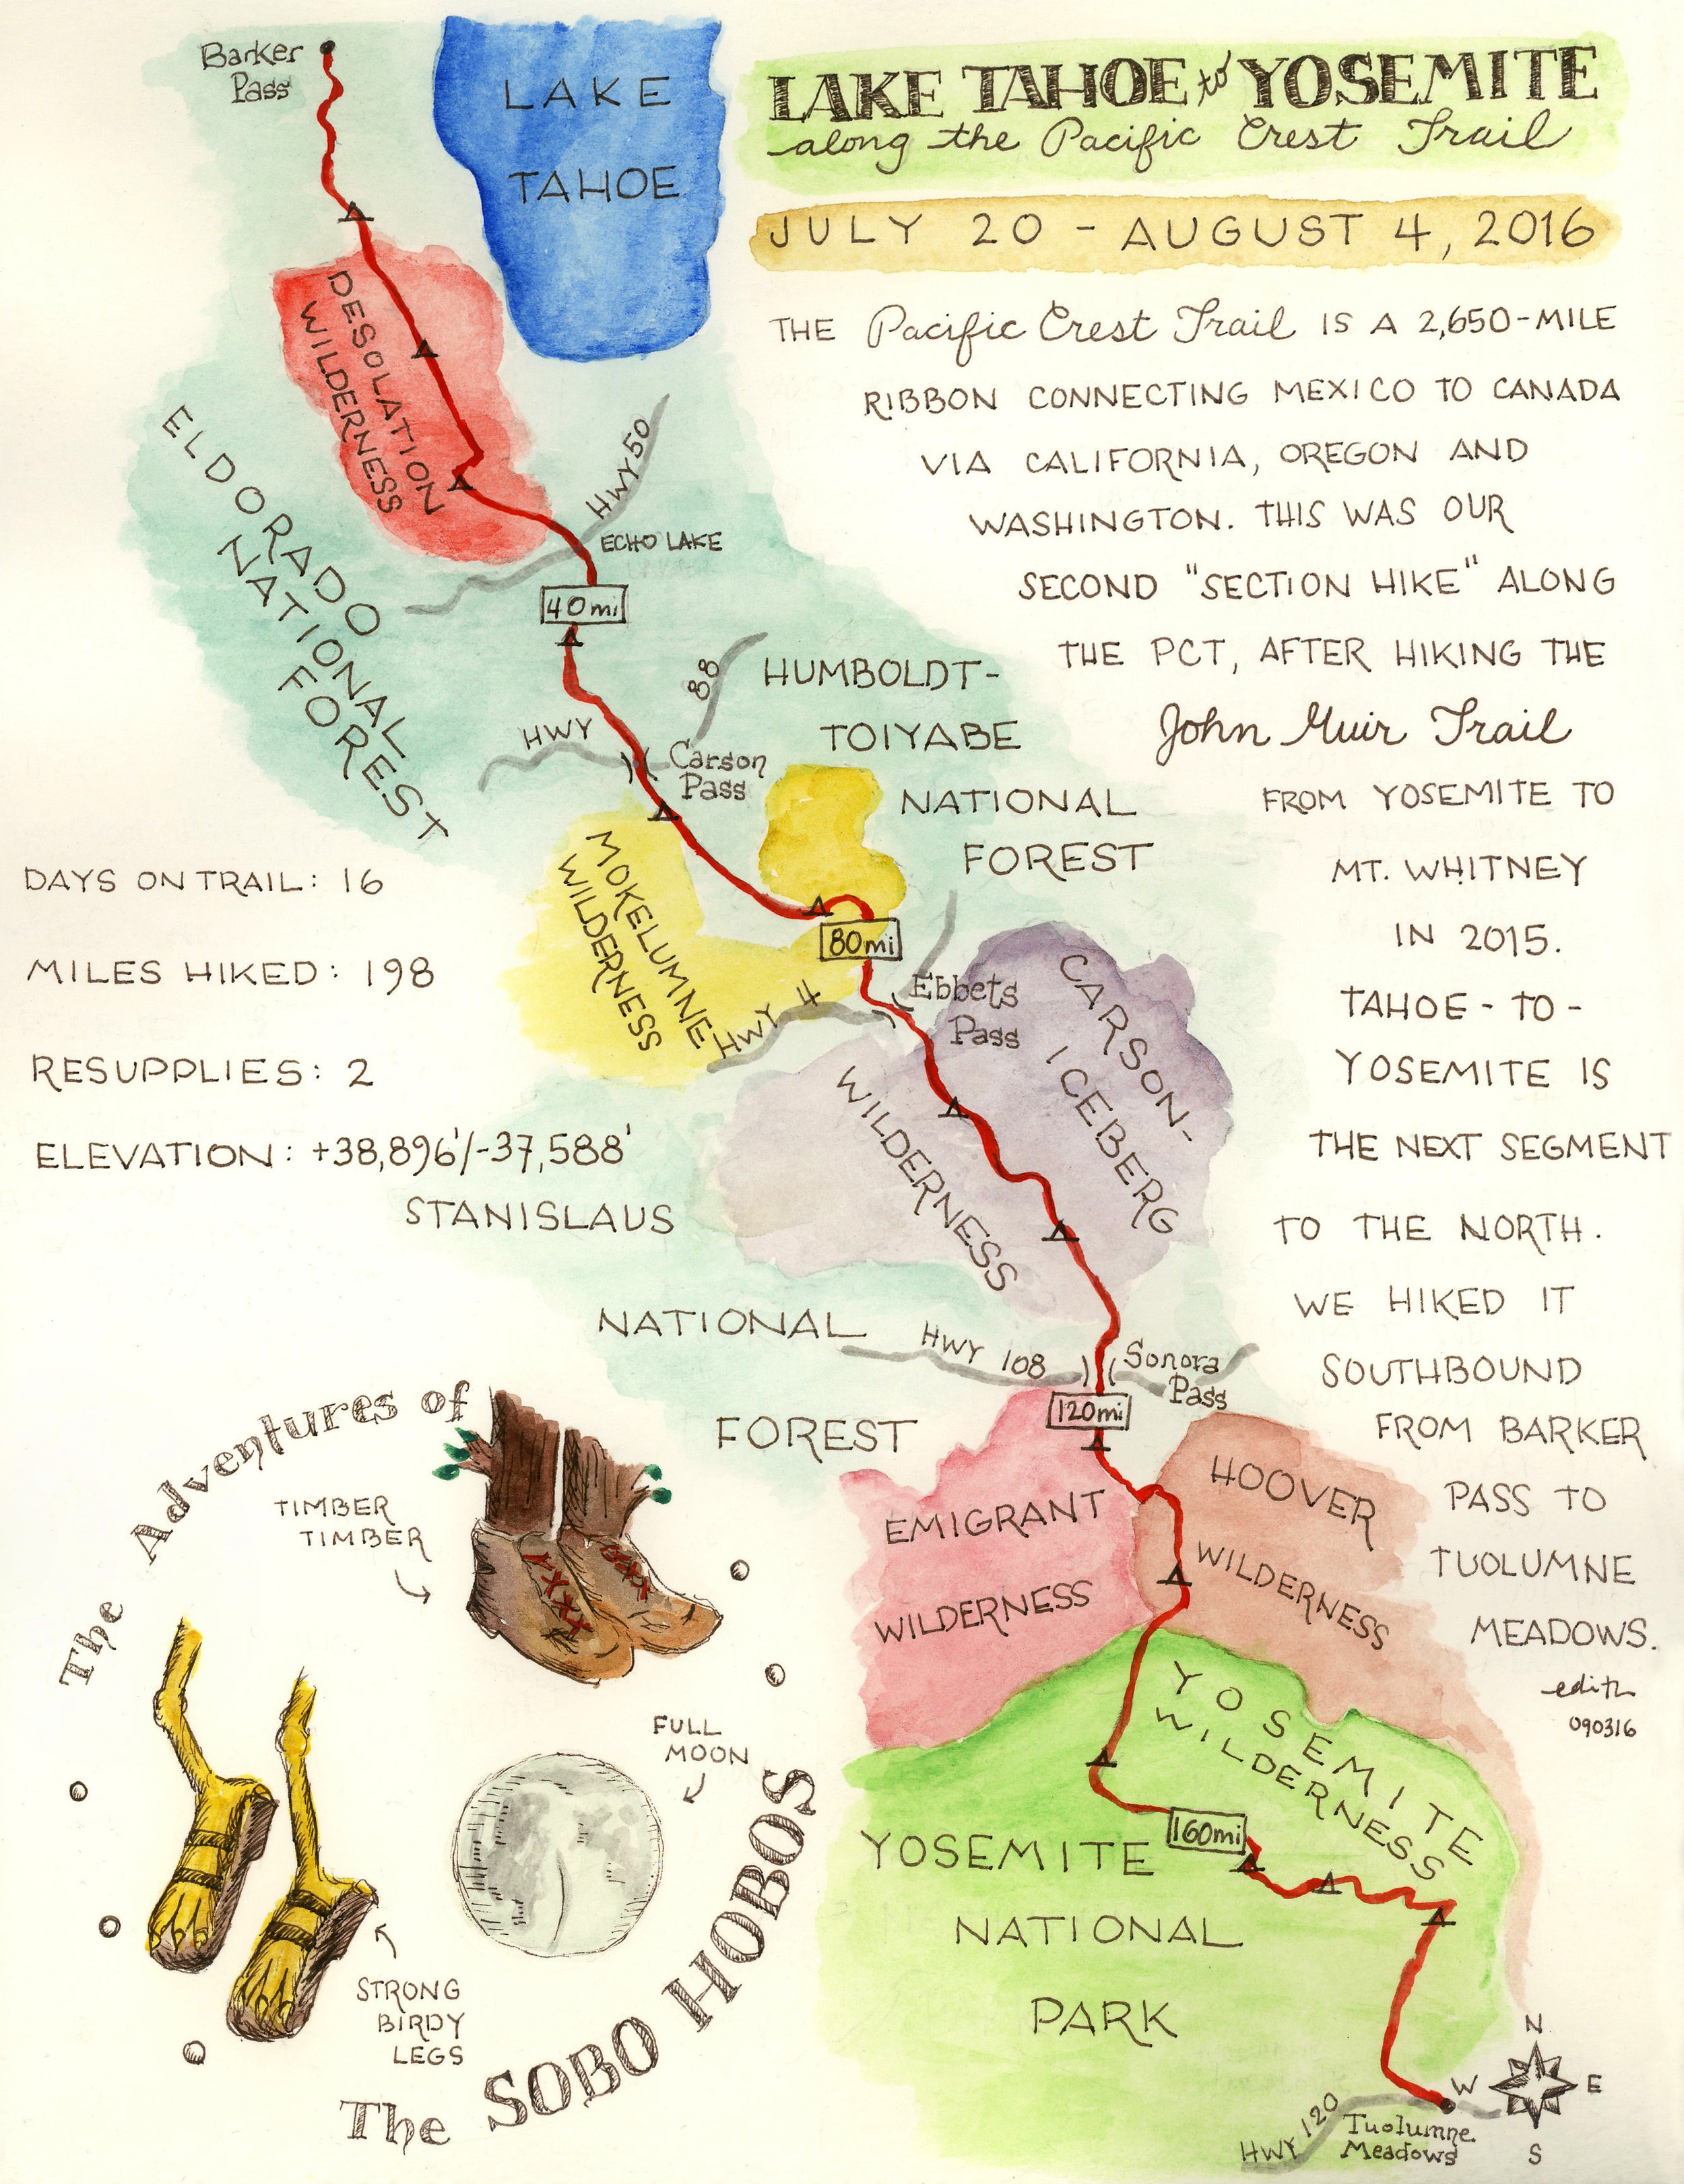 Barker
Pass
LAKE
TAHOE
LAKE TAHOE to YOSEMITE
along the Pacific Crest Trail
JULY 20 - AUGUST 4, 2016
THE Pacific Crest Trail IS A 2,650-MILE
RIBBON CONNECTING MEXICO TO CANADA
VIA CALIFORNIA, OREGON AND
WASHINGTON. THIS WAS OUR
SECOND "SECTION HIKE" ALONG
THE PCT, AFTER HIKING THE
John Muir Trail
FROM YOSEMITE TO
MT. WHITNEY
IN 2015.
TAHOE-TO-
YOSEMITE IS
THE NEXT SEGMENT
TO THE NORTH.
WE HIKED IT
SOUTHBOUND
FROM BARKER
PASS TO
TUOLUMNE
MEADOWS.
edith
090316
DESOLATION
WILDERNESS
ELDORADO
NATIONAL
FOREST
HWY 50
ECHO LAKE
40mi
88
HWY
Carson
Pass
HUMBOLDT-
TOIYABE
NATIONAL
FOREST
MOKELUMNE
WILDERNESS
80mi
HWY 4
Ebbets
Pass
CARSON-
ICEBERG
WILDERNESS
DAYS ON TRAIL: 16
MILES HIKED: 198
RESUPPLIES: 2
ELEVATION: +38,896'/-37,588'
STANISLAUS
NATIONAL
FOREST
HWY 108
Sonora
Pass
120mi
EMIGRANT
WILDERNESS
HOOVER
WILDERNESS
YOSEMITE
WILDERNESS
160mi
YOSEMITE
NATIONAL
PARK
HWY 120
Tuolumne
Meadows
N
W E
S
The Adventures of
TIMBER
TIMBER
FULL
MOON
STRONG
BIRDY
LEGS
The SOBO HOBOS